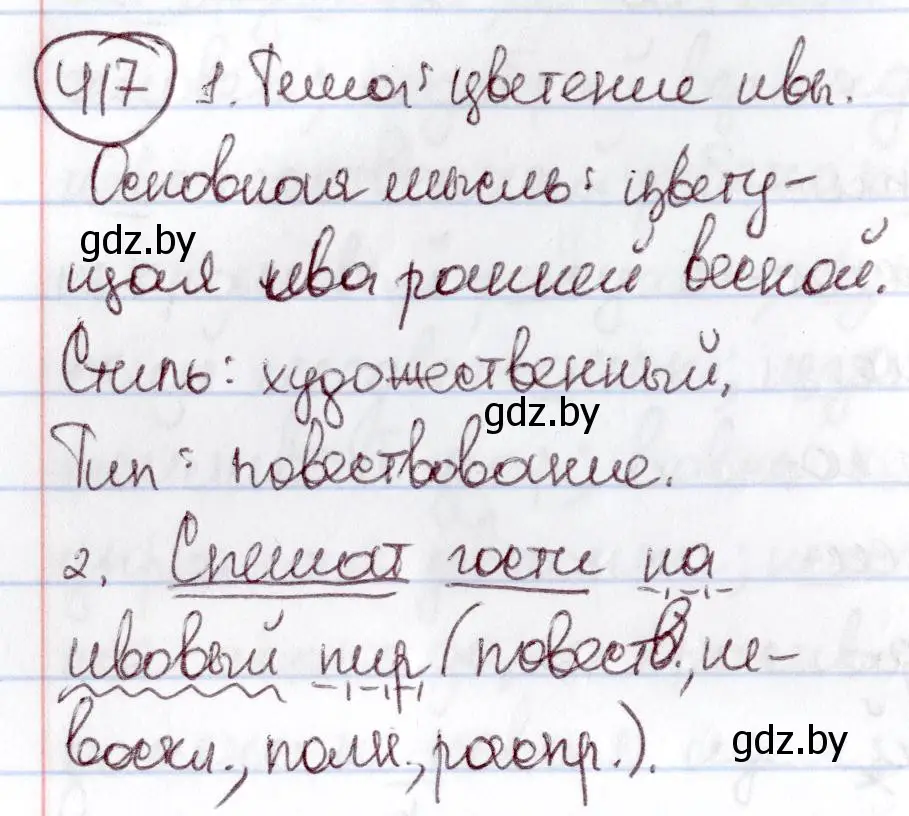 417 1. Тема: цветение ивы.
Основная мысль: цвету-
gdz.by
щая ива ранней весной.
Стиль: художественный,
gdz.by
Тип: повествование.
2. Спешат гости на
ивовый пир (повеств., не-
воскл., полн., распр.).
gdz.by